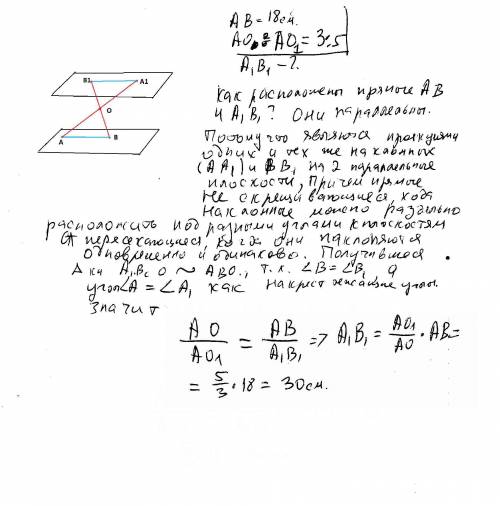 AB = 18см.
AO : AO₁ = 3:5
A₁B₁ - ?
Как расположены прямые AB
и A₁B₁? Они параллельны.
B1 A1
O
A B
Потому что являются проекциями
одних и тех же наклонных
(AA₁) и BB₁ на 2 параллельные
плоскости, Причем прямые
не скрещивающиеся, когда
наклонные можно раздельно
расположить под разными углами к плоскостям
а пересекающиеся, когда они наклоняются
одновременно и одинаково. Получившиеся
Δ ки A₁B₁O ~ ABO., т.к. ∠B = ∠B₁ а
угол ∠A = ∠A₁ как накрест лежащие углы.
Значит
AO / AO₁ = AB / A₁B₁ => A₁B₁ = AO₁ / AO · AB =
= 5/3 · 18 = 30см.